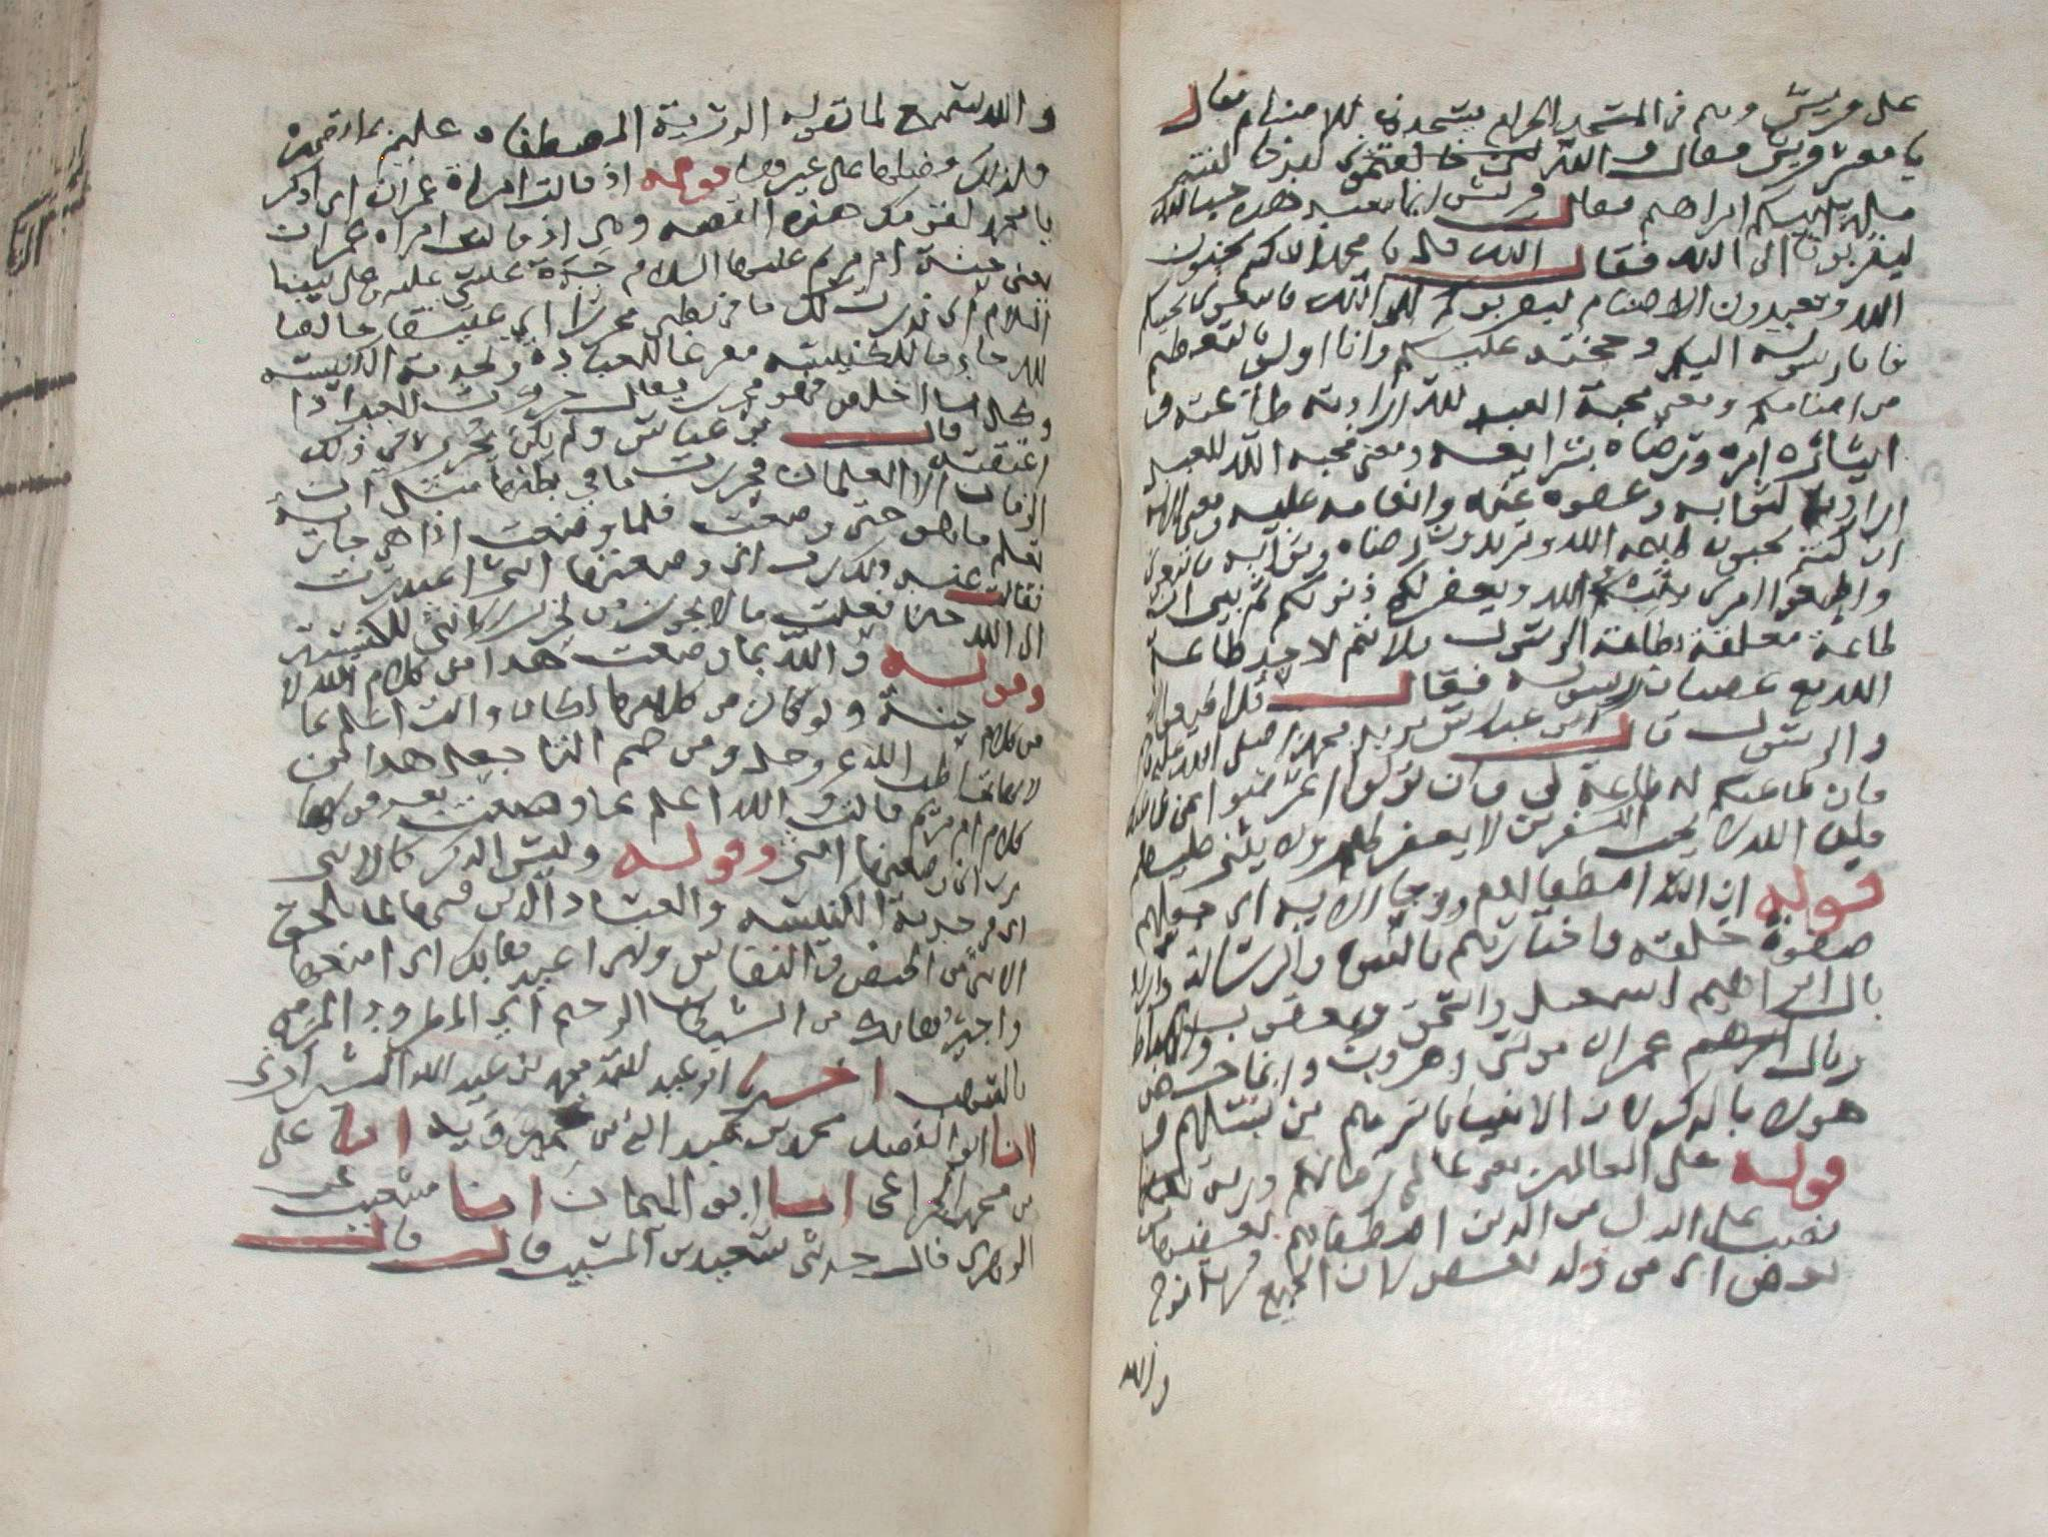 على قريش وهم في المسجد الحرام يسجدون للاصنام فقال
يا معشر قريش فقال والله لقد خالفتم
ابراهيم فقال قريش انما نعبد هذه حبا لله
ليقربونا الى الله فقال الله قل يا محمد ان كنتم تحبون
الله وتعبدون الاصنام ليقربوكم الى الله فاتبعوني يحببكم
فانا رسوله اليكم وحجته عليكم وانا اولى بالتعظيم
من اصنامكم ومعنى محبة العبد لله ارادته طاعته و
ايثاره امره ورضاه بشرايعه ومعنى محبه الله للعبد
ارادته لثوابه وعفوه عنه وانعامه عليه ومعنى الايه
ان كنتم تحبون طاعه الله وتريدون رضاه وثوابه فاتبعوني
واطيعوا امري يحببكم الله ويغفر لكم ذنوبكم ثم بين ان
طاعة معلقة بطاعة الرسول فلا تتم لاحد طاعة
الله مع عصيان رسوله فقال قل اطيعوا الله
والرسول قال ابن عباس يريد محمدا صلى الله عليه
فان طاعتكم له طاعة لي فان تولوا اعرضوا عن
فان الله لا يحب الكافرين لا يغفر لهم ولا يثني عليهم
قوله ان الله اصطفى ادم ونوحا الايه اي جعلهم
صفوة خلقه واختارهم بالنبوة والرسالة واراد
بال ابراهيم اسمعيل واسحق ويعقوب والاسباط
وبال عمران موسى وهرون وانما خص
هولا بالذكر لان الانبيا باسرهم من نسلهم و
قوله على العالمين يعني عالمي زمانهم ذرية
نصب على البدل من الذين اصطفاهم بعضها من
بعض اي من ولد بعض لان الجميع ذرية ادم ثم ذرية نوح
والله
والله سميع لما تقوله الذرية المصطفاه عليم بما
فلذلك فضلها على غيرها قوله اذ قالت امراة عمران اي اذكر
يا محمد لقومك هذه القصه وهي اذ قالت امراة عمران
يعني حنة ام مريم عليها السلام جدة عيسى عليه وعلى نبينا
السلام اني نذرت لك ما في بطني محررا اي عتيقا خالصا
لله خادما للكنيسه مفرغا للعبادة ولخدمة الكنيسه
وكل ما اخلص فهو محرر يقال حررت العبد اذا
اعتقته قال ابن عباس ولم يكن يحرر في ذلك
الزمان الا الغلمان فحررت ما في بطنها قبل ان
تعلم ما هو حتى وضعت فلما وضعت اذا هي جارية
فقالت عند ذلك رب اني وضعتها انثى اعتذرت
الى الله حين فعلت ما لا يجوز من تحرير الانثى للكنيسة
وقوله والله اعلم بما وضعت هذا من كلام الله لا
من كلام حنة ولو كان من كلامها لكان وانت اعلم بما
لانها تخاطب الله عز وجل ومن ضم التا جعل هذا من
كلام ام مريم قالت والله اعلم بما وضعت بعد قولها
رب اني وضعتها انثى وقوله وليس الذكر كالانثى
اي في خدمة الكنيسه والعباد الذين فيها لما يلحق
الانثى من الحيض والنفاس واني اعيذها بك اي امنعها
واجيرها بك من الشيطان الرجيم اي المطرود المرمي
بالشهب اخبرنا ابو عبد الله محمد بن عبد الله الشيرازي
انا ابو الفضل محمد بن عبد الله بن خميرويه انا على
بن محمد الخزاعي انا ابو اليمان انا شعيب عن
الزهري قال حدثني سعيد بن المسيب قال قال